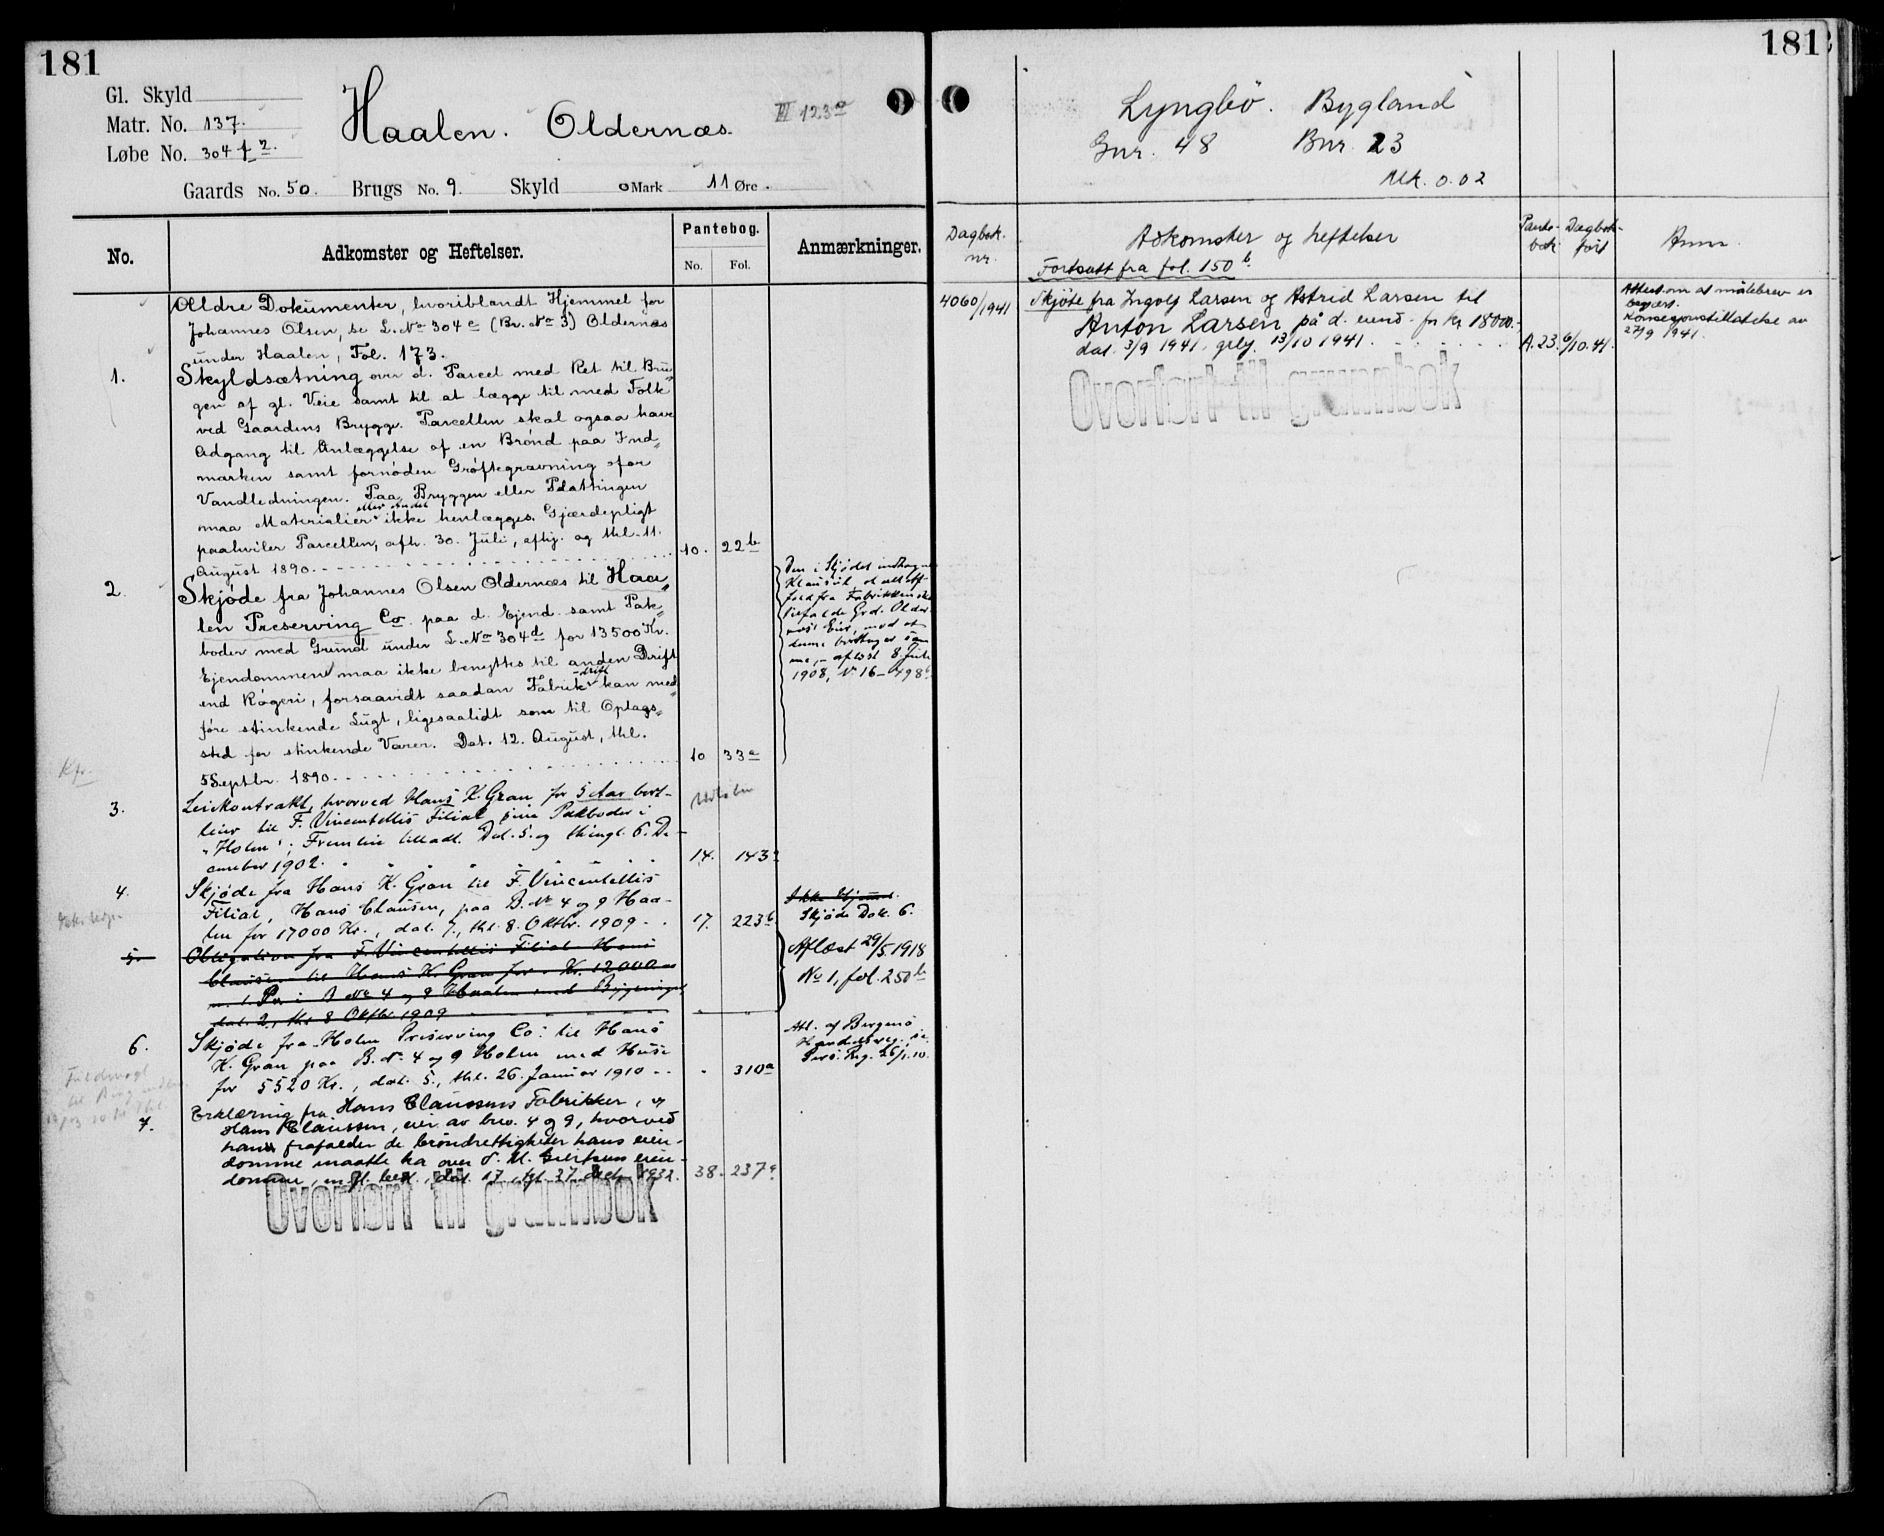 181
Gl. Skyld
Matr. No. 137.
Løbe No. 304 f 2.
Haalen. Oldernæs.
III 123a
Gaards No. 50. Brugs No. 9. Skyld 0 Mark 11 Øre.
No.
Adkomster og Heftelser.
Pantebog.
No. Fol.
Anmærkninger.
Ældre Dokumenter, hvoriblandt Hjemmel for
Johannes Olsen, se L. No 304 c (Br. No 3) Oldernæs
under Haalen, Fol. 173.
1. Skyldsætning over d. Parcel med Ret til Bru=
gen af gl. Veie samt til at lægge til med Folk
ved Gaardens Brygge. Parcellen skal ogsaa have
Adgang til Anlæggelse af en Brønd paa Ind=
marken samt fornøden Grøftegravning for
Vandledningen. Paa Bryggen eller Plattingen
maa Materialier eller Andet ikke henlægges. Gjærdepligt
paahviler Parcellen, afh. 30. Juli, afhj. og thl. 11.
August 1890. 10. 22b
2. Skjøde fra Johannes Olsen Oldernæs til Haa=
len Preserving Co. paa d. Ejend. samt Pak=
boder med Grund under L. No 304 d for 13500 Kr.
Ejendommen maa ikke benyttes til anden Drift
end Røgeri, forsaavidt saadan Fabrikdrift kan med=
føre stinkende Lugt, ligesaalidt som til Oplags=
sted for stinkende Varer. Dat. 12. August, thl.
5 Septbr. 1890. 10 33a
Den i Skjødet indtagne
Klausul, at alt Af-
fald fra Fabrikken skal
tilfalde Grd. Older-
næs' Eier, mod at
denne borttager sam
me, - aflyst 8. Juli
1908, No 16 - 498
Kfr.
3. Leiekontrakt, hvorved Hans K. Gran for 5 Aar bort-
leier til F. Vincentellis Filial sine Pakboder i
"Holen"; Fremleie tilladt. Dat. 5. og thingl. 6. De-
cember 1902. 14. 143
4. Skjøde fra Hans K. Gran til F. Vincentellis
Filial, Hans Clausen, paa B. No 4 og 9 Haa-
len for 17000 Kr., dat. 7., thl. 8. Oktbr. 1909. 17. 223b
Ikke Hjemmel.
Skjøde Dok. 6.
5. Obligation fra F. Vincentellis Filial Hans
Clausen til Hans K. Gran for Kr. 12000
m. 1. Pr. i B. No 4 og 9 Haalen med Bygninger,
dat. 2., thl. 8 Oktbr. 1909
Aflæst 29/5 1918
No 1, fol. 250b
6. Skjøde fra Holen Preserving Co. til Hans
K. Gran paa B. No. 4 og 9 Holen med Huse
for 5520 Kr., dat. 5., thl. 26. Januar 1910 310a
Att. af Bergens
Handelsreg.,
Pers. Reg. 26/1. 10.
7. Erklæring fra Hans Claussens Fabrikker, v
Hans Claussen, eier av brno. 4 og 9, hvorved
han frafalder de brøndrettigheter hans eien-
domme maatte ha over
domme, m. fl. best., dat. 17., tgl. 27. decbr. 1932. 38 - 237a
Overført til grunnbok
181
Lyngbö. Bygland
Gnr. 48 Bnr. 23
Mk. 0.02
Dagbok.
nr.
Adkomster og heftelser
Pante-
bok
Dagbok-
ført
Anm.
Fortsatt fra fol. 150b.
4060/1941
Skjöte fra Ingolf Larsen og Astrid Larsen til
Anton Larsen på d. eiend. for kr 18000.-
dat. 3/9 1941. grlj. 13/10 1941. A. 23. 6/10. 41.
Attest om at målebrev er
begjært.
Konsesjonstillatelse av
27/9 1941.
Overført til grunnbok